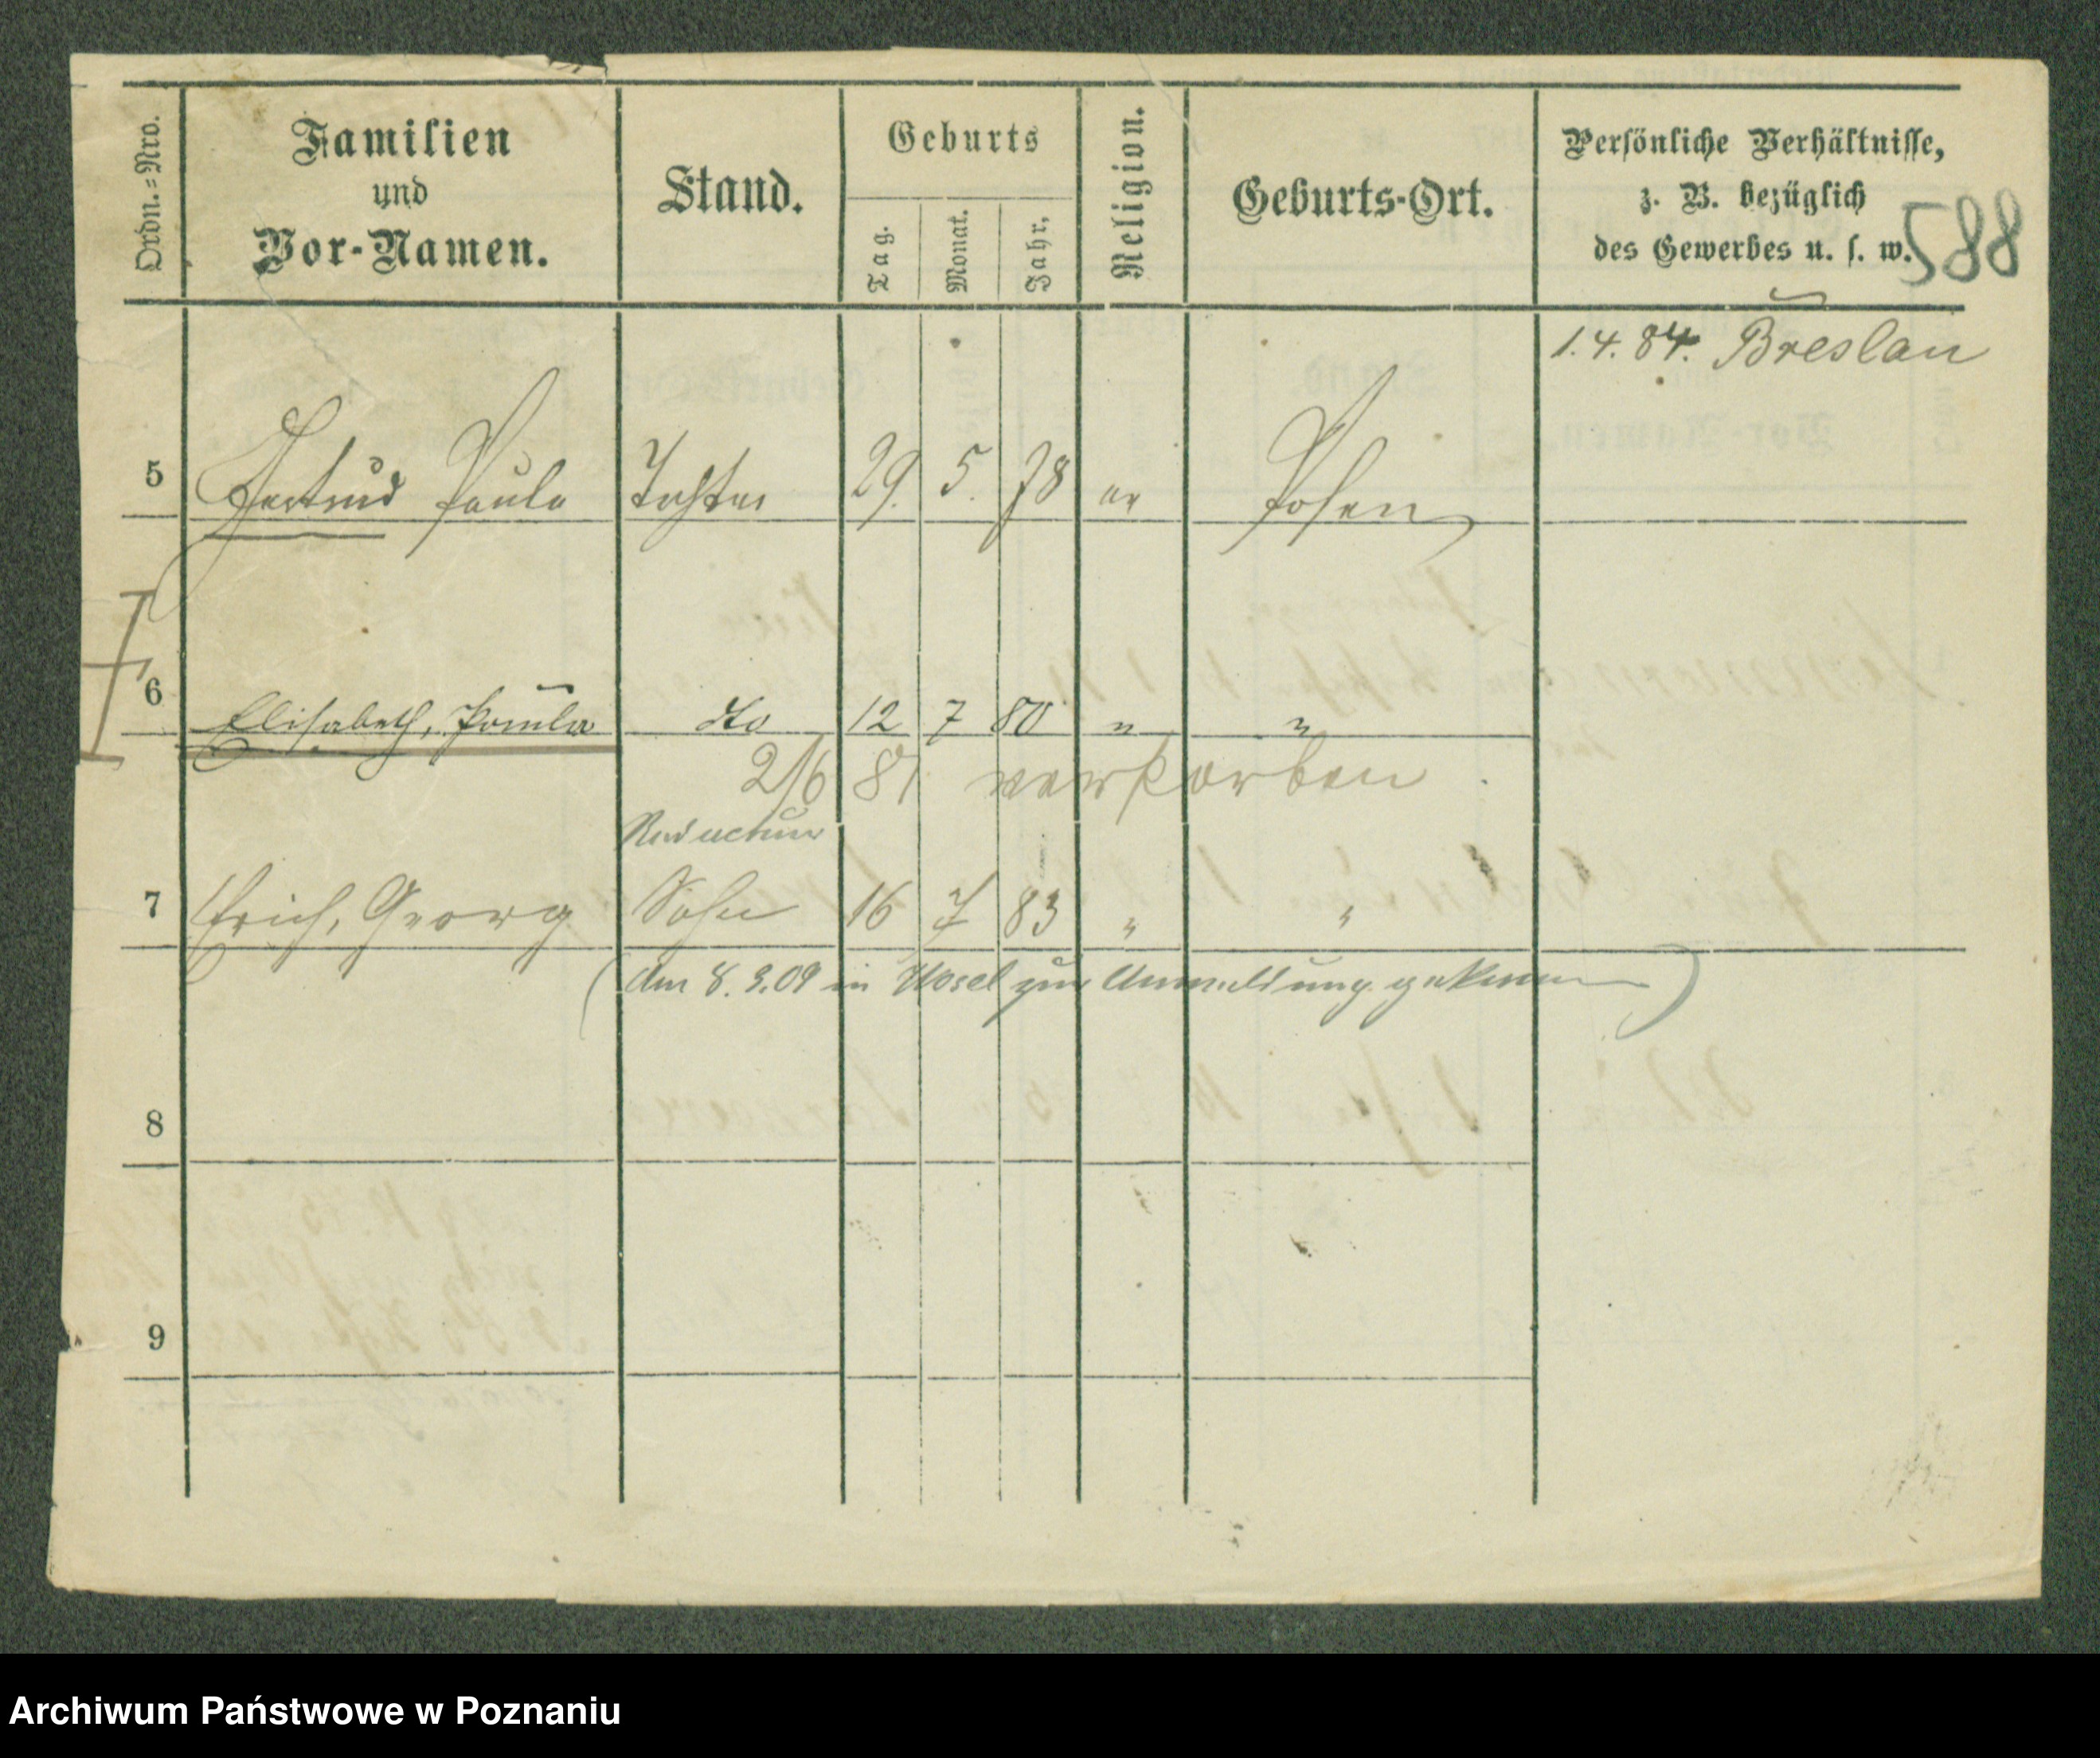 Ordn.=Nro.
Familien
und
Vor-Namen.
Stand.
Geburts
Tag.
Monat.
Jahr.
Religion.
Geburts-Ort.
Persönliche Verhältnisse,
z. B. bezüglich
des Gewerbes u. s. w.
588
1.4.84. Breslau
5 Gertrud Paula Tochter 29. 5. 78 ev Posen
6 Elisabeth, Paula dto 12 7 80 " "
2/6 81 verstorben
Redacteur
7 Erich, Georg Sohn 16 7 83 " "
(Am 8.3.09 in Kosel zur Anmeldung gekommen)
8
9
Archiwum Państwowe w Poznaniu